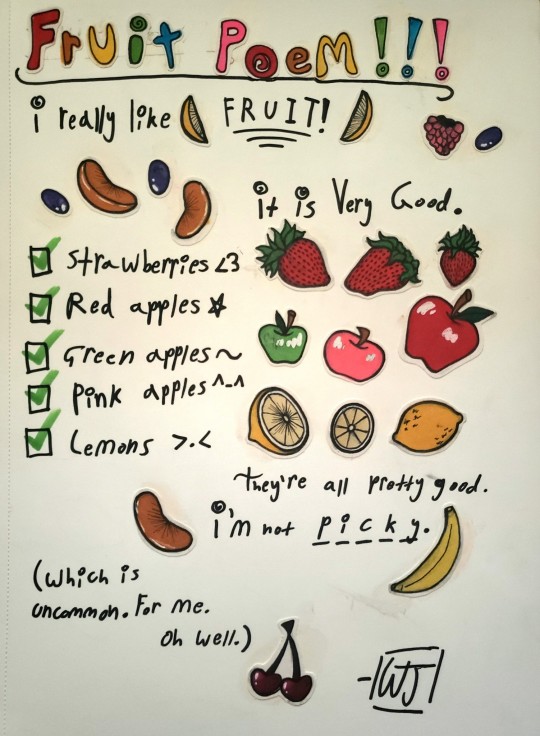 Fruit Poem!!!
i really like FRUIT!
it is Very Good.
Strawberries <3
Red apples ☆
Green apples ~
Pink apples ^-^
Lemons >.<
they're all pretty good.
i'm not picky.
(Which is
uncommon. For me.
Oh well.)
-|WJ|